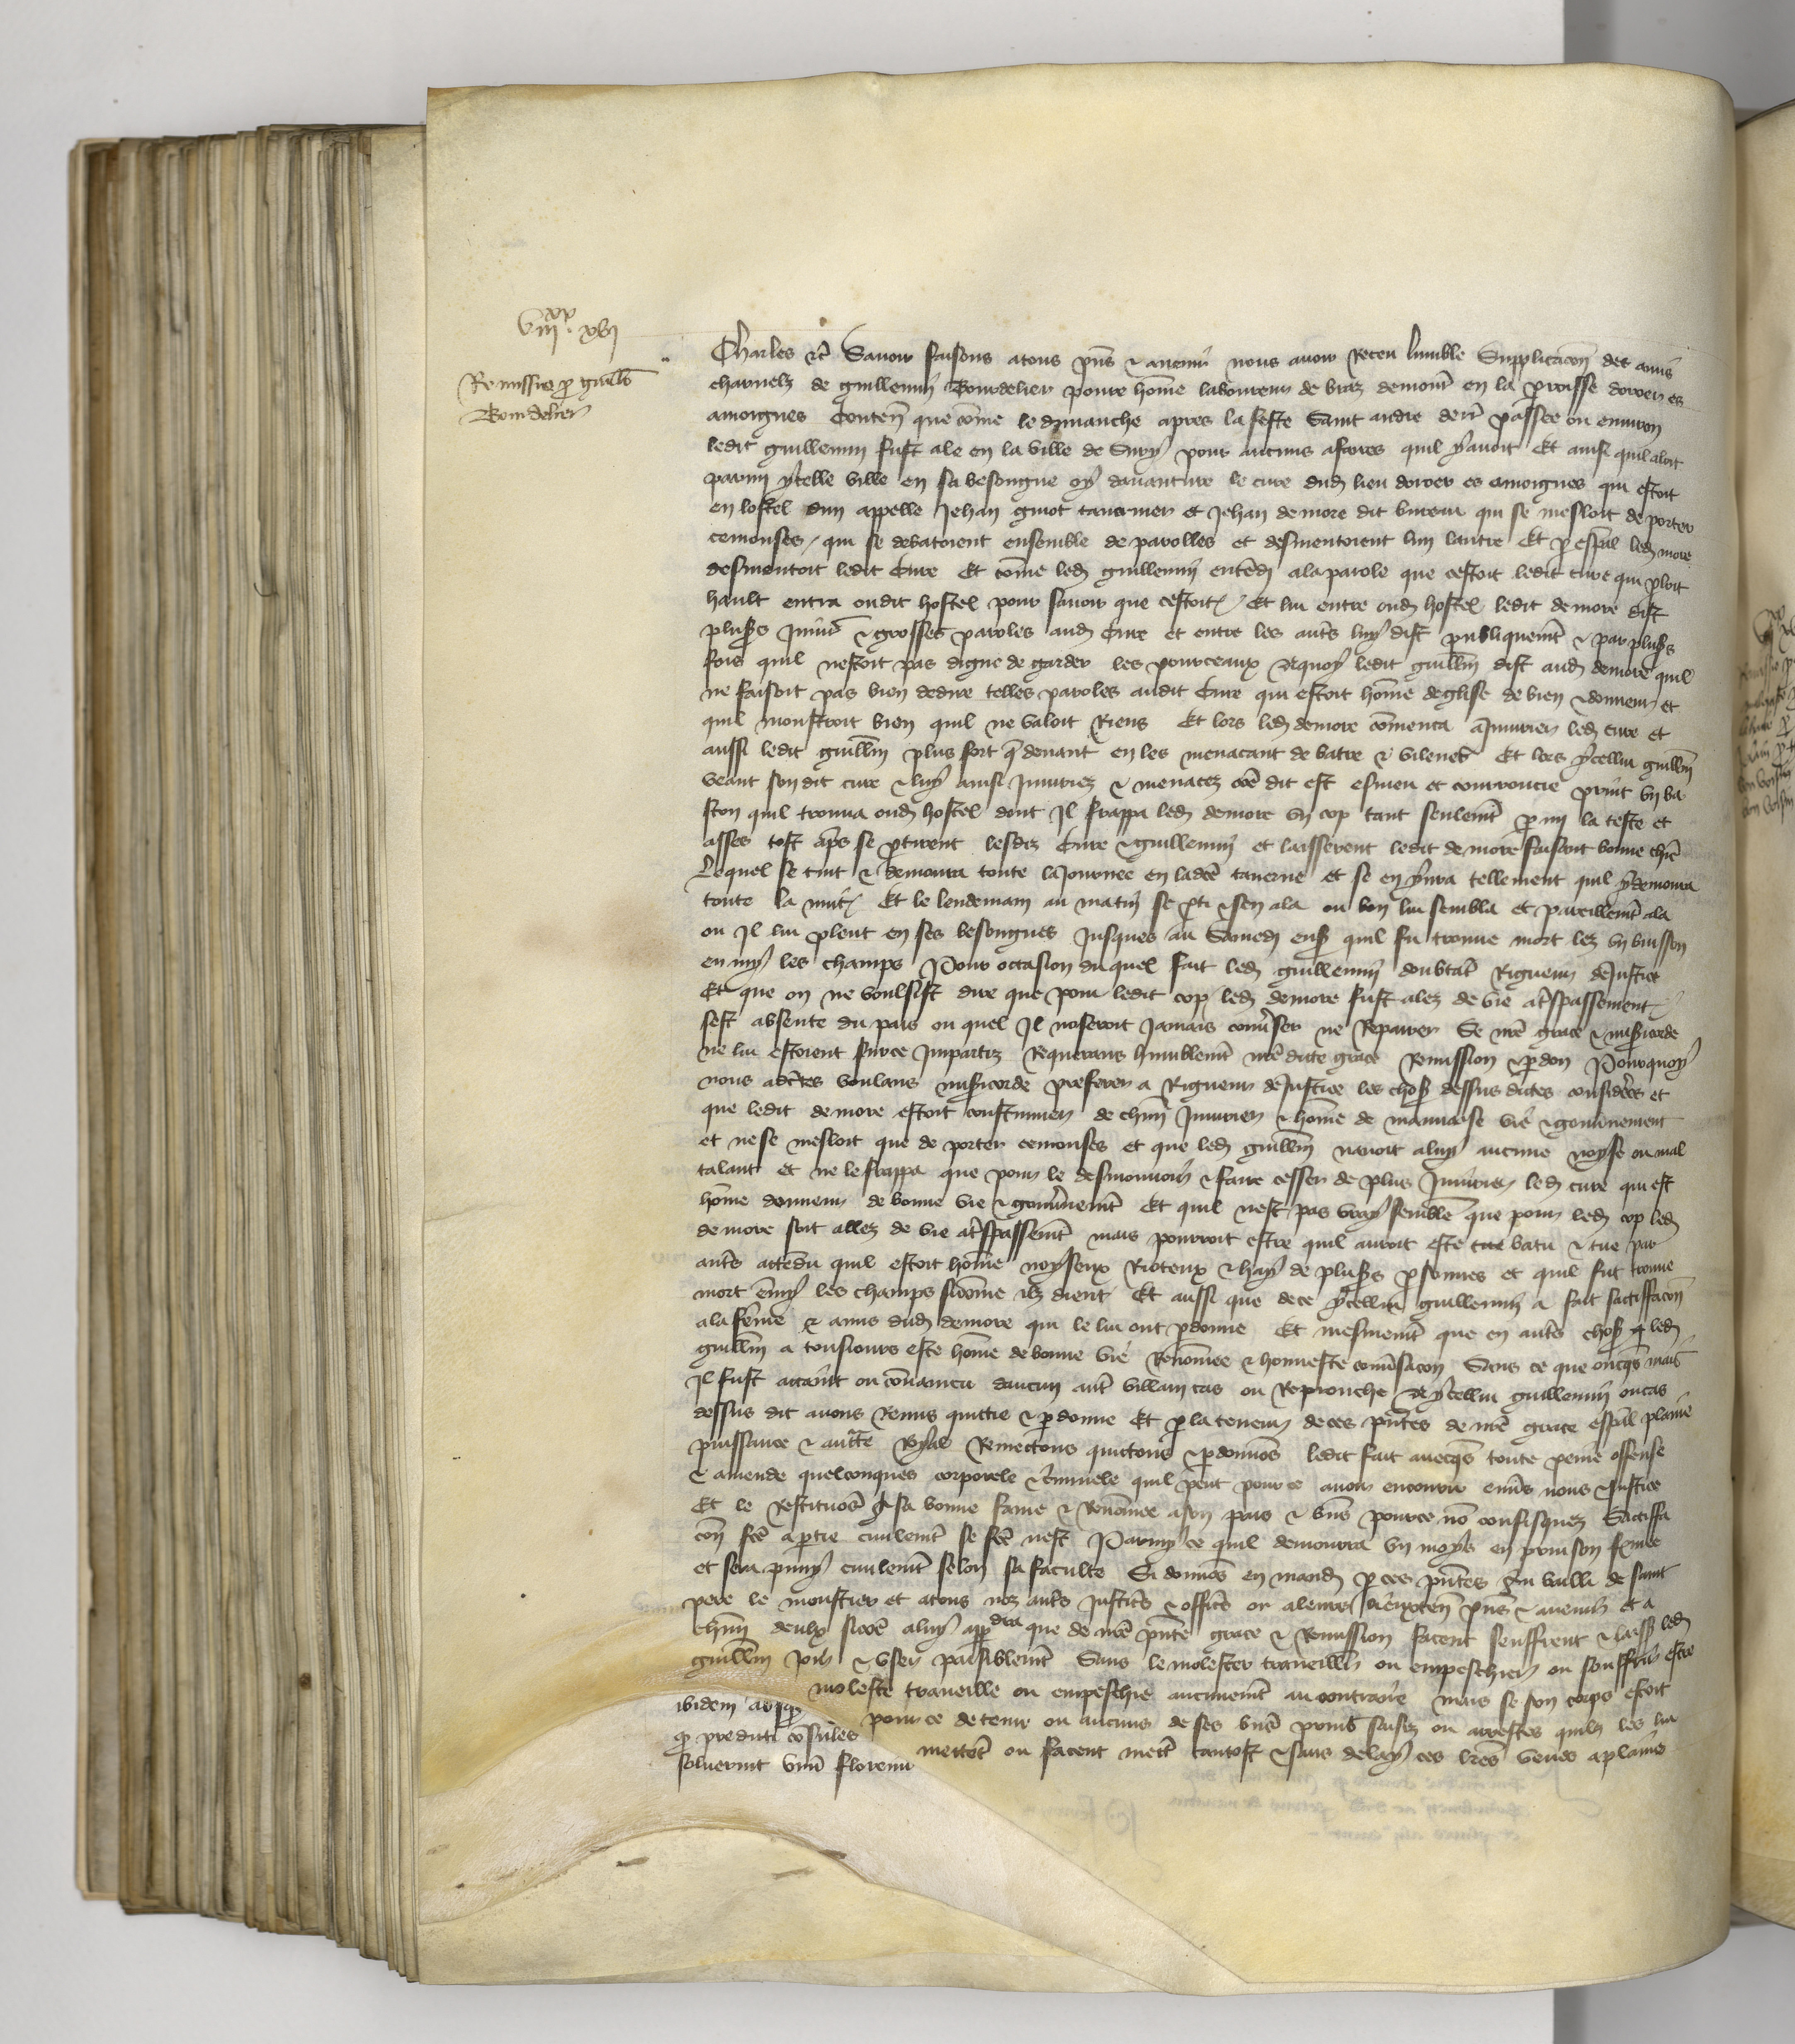 viiixx xvi
Remissio pro Guillo
Bourdelier
Charles etc Savoir faisons a tous pns & avenir nous avoir receu lumble supplicacon des amis
charnelz de guillemin Bourdelier povre home laboureur de braz demour en la proisse dorver es
amoignes Conten que come le dimanche apres la feste Saint andre derr passee ou environ
ledit guillemin fust ale en la ville de Sury pour aucuns afaires quil y avoit Et ainsi quil aloit
parmy ycelle ville en sa besongne oy davanture le cure dud lieu dorver es amoignes qui estoit
en lostel dun appelle Jehan guiot tavernier et Jehan de more dit bureau qui se mesloit de porter
cemonses / qui se debatoient ensemble de parolles et desmentoient lun lautre Et p espal led more
desmentoit ledit Cure Et come led guillemin entendi a la parole que cestoit ledit cure qui ploit
hault entra oudit hostel pour savoir que cestoit / Et lui entre oud hostel ledit de more dist
plus injur & grosses paroles aud Cure et entre les auts luy dist publiquemt & par plus
fois quil nestoit pas digne de garder les pourceaux Aquoy ledit guillm dist aud demore quil
ne faisoit pas bien de dire telles paroles audit Cure qui estoit home deglise de bien & donneur et
quil monstroit bien quil ne valoit riens Et lors led demore comenca a Injurier led cure et
aussi ledit guillm plus fort q devant en les menacant de batre & vilener Et lors ycellui guillm
veant son dit cure & luy ainsi Injuriez & menacez coe dit est esmeu et courroucie print un ba
ston quil trouva oud hostel dont Il frappa led demore un cop tant seulemt p mi la teste et
asses tost aps se ptirent lesdiz Cure & guillemin et laisserent ledit de more faisant bonne chie
Lequel se tint & demoura toute la Journee en ladce taverne et se en yvra tellement quil y demoura
toute la nuit / Et le lendemain au matin se pti & sen ala ou bon lui sembla et pareillemt ala
ou Il lui pleut en ses besongnes Jusques au Samedi ens quil fu trouve mort lez un buisson
en my les champs Pour occasion du quel fait led guillemin doubtat Rigueur de Justice
Et que on ne voulsist dire que pour ledit cop led demore fust alez de vie a tspassement /
sest absente du pais ou quel Il noseroit Jamais convser ne Reparer Se nre grace & misicorde
ne lui estoient sur ce Impartiz Requerans humblemt nre dicte grace Remission & pdon Pourquoy
nous adctes voulans misicorde preferer a Rigueur de Justice les chos dessus dictes consideres et
que ledit demore estoit coustumier de chun Injurier & home de mauvaise vie & gouvnement
et ne se mesloit que de porter cemonses et que led guillm navoit a luy aucune noyse ou mal
talant et ne le frappa que pour le desmouvoir & faire cesser de plus Injurier led cure qui est
home donneur de bonne vie & gouvnemt Et quil nest pas vray semble que pour led cop led
de more soit allez de vie a tspassemt mais pourroit estre quil auroit este batu & tue par
auts attedu quil estoit home noyseux Rioteux & hay de pluss psonnes et quil fut trouve
mort emy les champs sicome ilz dient Et aussi que de ce ycellui guillemin a fait satisfacon
a la feme & amis dud demore qui le lui ont pdonne Et mesmemt que en auts chos led
guillm a tousiours este home de bonne vie Renomee & honneste convsacon Sans ce que oncqs mais
Il fust attaint ou convaincu daucun aut villain cas ou Reprouche A ycellui guillemin ou cas
dessus dit avons Remis quictie & pdonne Et p la teneur de ces pntes de nre grace espal plaine
puissance & aucte Royal Remectons quictons & pdonnos ledit fait avecqs toute peine offense
& amende quelconques corporele & criminele quil peut pour ce avoir encouru envs nous & Justice
Et le Restituos A sa bonne fame & Renomee a son pais & biens pour ce no confisquez Satisffa
con fce a ptie civilemt se fce nest Parmy ce quil demourra un moys en prinson fermee
et sera puny civilemt selon sa faculte Si donnos en mand p ces pntes au bailli de saint
pere le moustier et a tous noz auts Justics & offics ou a leurs lieuxten pns & avenir et a
chun deulx sicoe a luy appdra que de nre pnte grace & Remission facent seuffrent & laiss led
guillm Joir & user paisiblemt Sans le molester travaillier ou empeschier ou souffrir estre
moleste traveille ou empeschie aucunemt au contraire mais se son corps estoit
pour ce detenu ou aucuns de ses biens prins saisiz ou arrestes quilz les lui
mettet ou facent mett tantost & sans delay ces lres veues a plaine
ibidem
q predicti cosules
solverint unu florenu